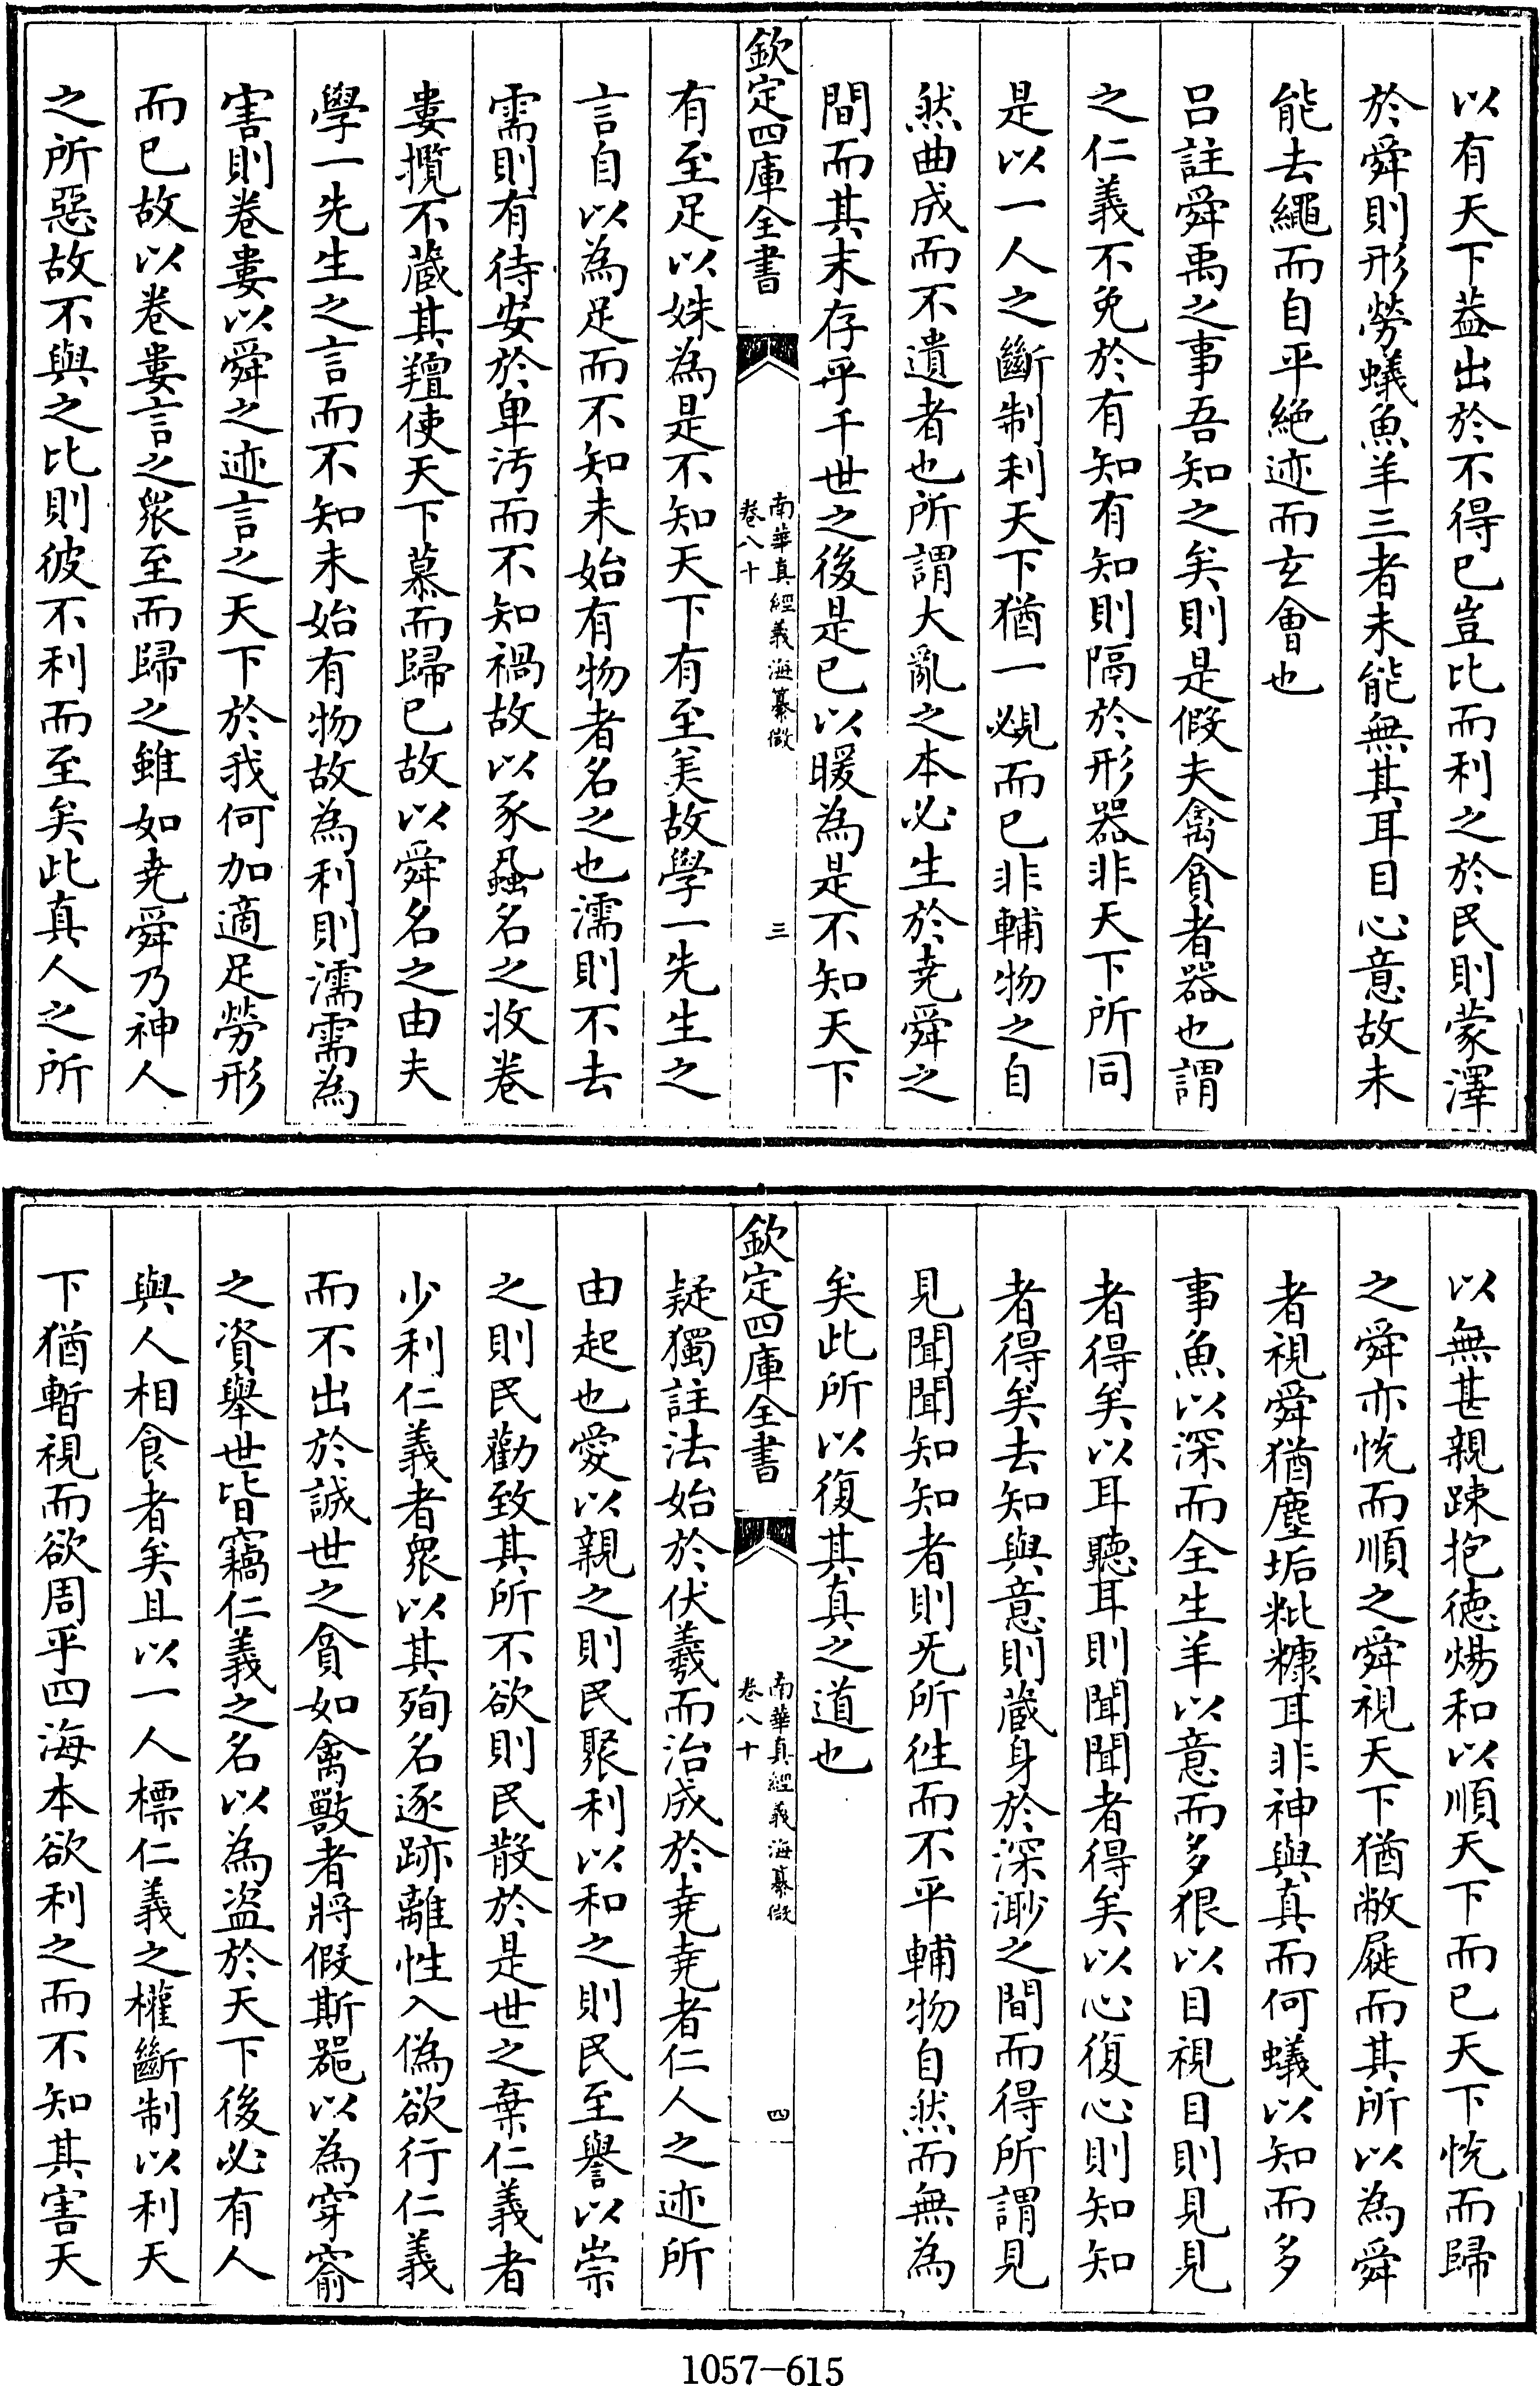 以有天下葢出於不得已豈比而利之於民則蒙澤
於舜則形勞蟻魚羊三者未能無其耳目心意故未
能去繩而自平絶迹而玄會也
吕註舜禹之事吾知之矣則是假夫禽貪者器也謂
之仁義不免於有知有知則隔於形器非天下所同
是以一人之斷制利天下猶一覕而已非輔物之自
然曲成而不遺者也所謂大亂之本必生於堯舜之
間而其末存乎千世之後是已以暖為是不知天下
欽定四庫全書
南華真經義海纂微
卷八十
三
有至足以姝為是不知天下有至美故學一先生之
言自以為足而不知未始有物者名之也濡則不去
需則有待安於卑汚而不知禍故以豕蝨名之收卷
婁攬不藏其羶使天下慕而歸已故以舜名之由夫
學一先生之言而不知未始有物故為利則濡需為
害則卷婁以舜之迹言之天下於我何加適足勞形
而已故以卷婁言之衆至而歸之雖如堯舜乃神人
之所惡故不與之比則彼不利而至矣此真人之所
以無甚親踈抱徳煬和以順天下而已天下恱而歸
之舜亦恱而順之舜視天下猶敝屣而其所以為舜
者視舜猶塵垢粃糠耳非神與真而何蟻以知而多
事魚以深而全生羊以意而多狠以目視目則見見
者得矣以耳聽耳則聞聞者得矣以心復心則知知
者得矣去知與意則藏身於深渺之間而得所謂見
見聞聞知知者則旡所徃而不平輔物自然而無為
矣此所以復其真之道也
欽定四庫全書
南華真經義海纂微
卷八十
四
疑獨註法始於伏羲而治成於堯堯者仁人之迹所
由起也愛以親之則民聚利以和之則民至譽以崇
之則民勸致其所不欲則民散於是世之棄仁義者
少利仁義者衆以其殉名逐跡離性入偽欲行仁義
而不出於誠世之貪如禽獸者將假斯器以為穿窬
之資舉世皆竊仁義之名以為盗於天下後必有人
與人相食者矣且以一人標仁義之權斷制以利天
下猶暫視而欲周乎四海本欲利之而不知其害天
1057-615